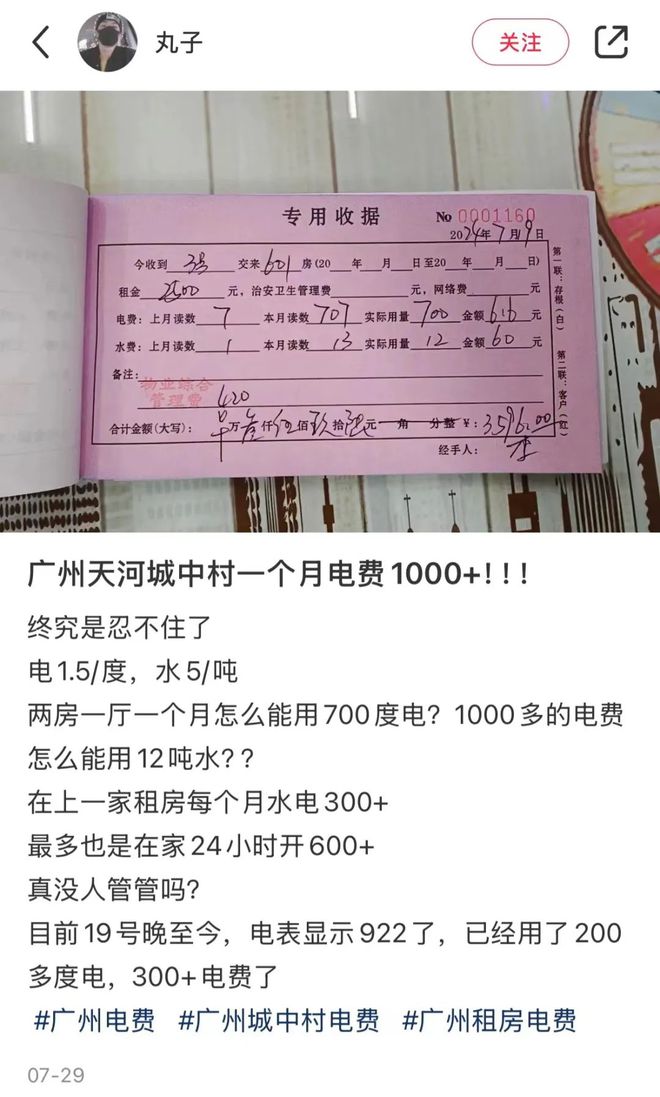 丸子
关注
专用收据
No 0001160
2024年7月19日
今收到 交来 601 房(20 年 月 日至20 年 月 日)
租金 2500 元,治安卫生管理费 元,网络费 元
电费:上月读数 7 本月读数 707 实际用量 700 金额 616 元
水费:上月读数 1 本月读数 13 实际用量 12 金额 60 元
备注:
物业综合
管理费 420
合计金额(大写): 万 仟 佰 玖 拾 元 角 分整 ¥:3596.00
经手人:
第一联:存根(白)
第二联:客户(红)
广州天河城中村一个月电费1000+!!!
终究是忍不住了
电1.5/度,水5/吨
两房一厅一个月怎么能用700度电?1000多的电费
怎么能用12吨水??
在上一家租房每个月水电300+
最多也是在家24小时开600+
真没人管管吗?
目前19号晚至今,电表显示922了,已经用了200
多度电,300+电费了
#广州电费 #广州城中村电费 #广州租房电费
07-29